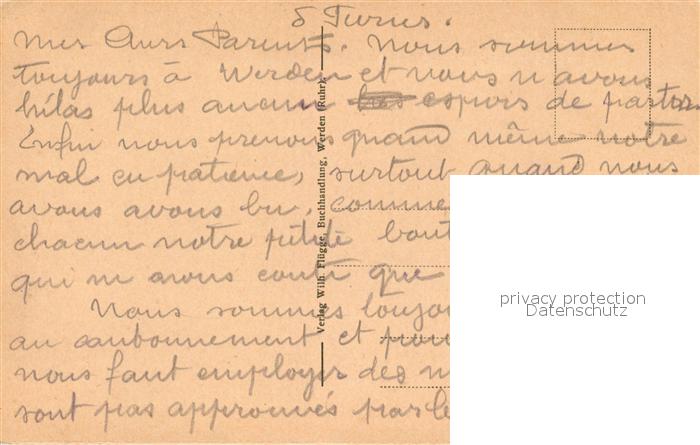 5
Mes Chers Parents. Nous sommes
toujours à Werden et nous n avons
hélas plus aucun espoirs de partir.
Enfin nous prenons quand même notre
mal en patience, surtout quand nous
avons avons bu, comme
chacun notre petite bout
qui ne avons que
Nous sommes toujou
au cantonnement et pour
nous faut employer des m
sont pas approuvés par le
Verlag Wilh. Flügge, Buchhandlung, Werden (Ruhr).
privacy protection
Datenschutz